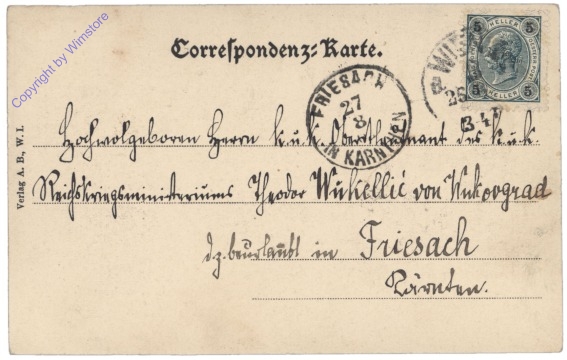 Copyright by Wimstore
Correspondenz-Karte.
5 HELLER 5
5 HELLER 5
WIEN
FRIESACH
27
8
IN KÄRNTHEN
Hochwolgeboren Herrn k.u.k. Oberstleutnant des k.u.k.
Reichskriegsministeriums Theodor Wukellić von Wukovgrad
dz. beurlaubt in Friesach
Kärnten.
Verlag A. B., W. I.